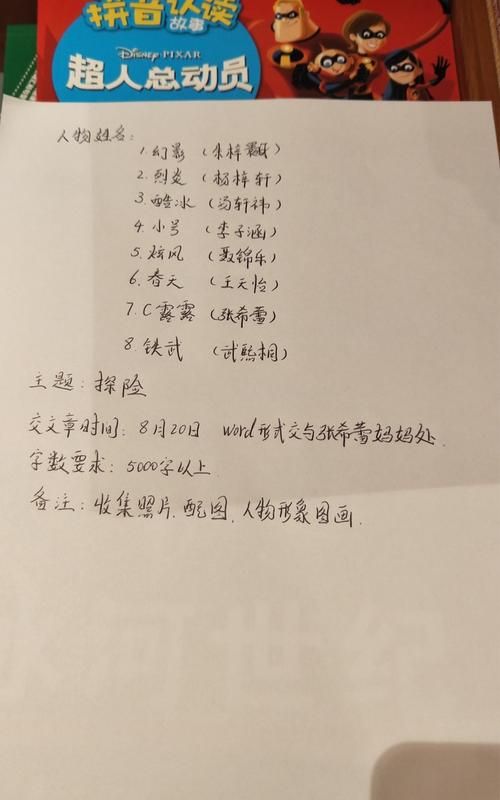 拼音认读
故事
DISNEY · PIXAR
超人总动员
人物姓名：
1. 幻影 （朱梓
2. 烈炎 （杨梓轩）
3. 酷冰 （冯轩祎）
4. 小号 （李子涵）
5. 炫风 （聂锦乐）
6. 春天 （王天怡）
7. C露露 （张希蕾）
8. 铁武 （武熙桐）
主题：探险
交文章时间：8月20日 word形式交与张希蕾妈妈处.
字数要求：5000字以上.
备注：收集照片.配图.人物形象图画.